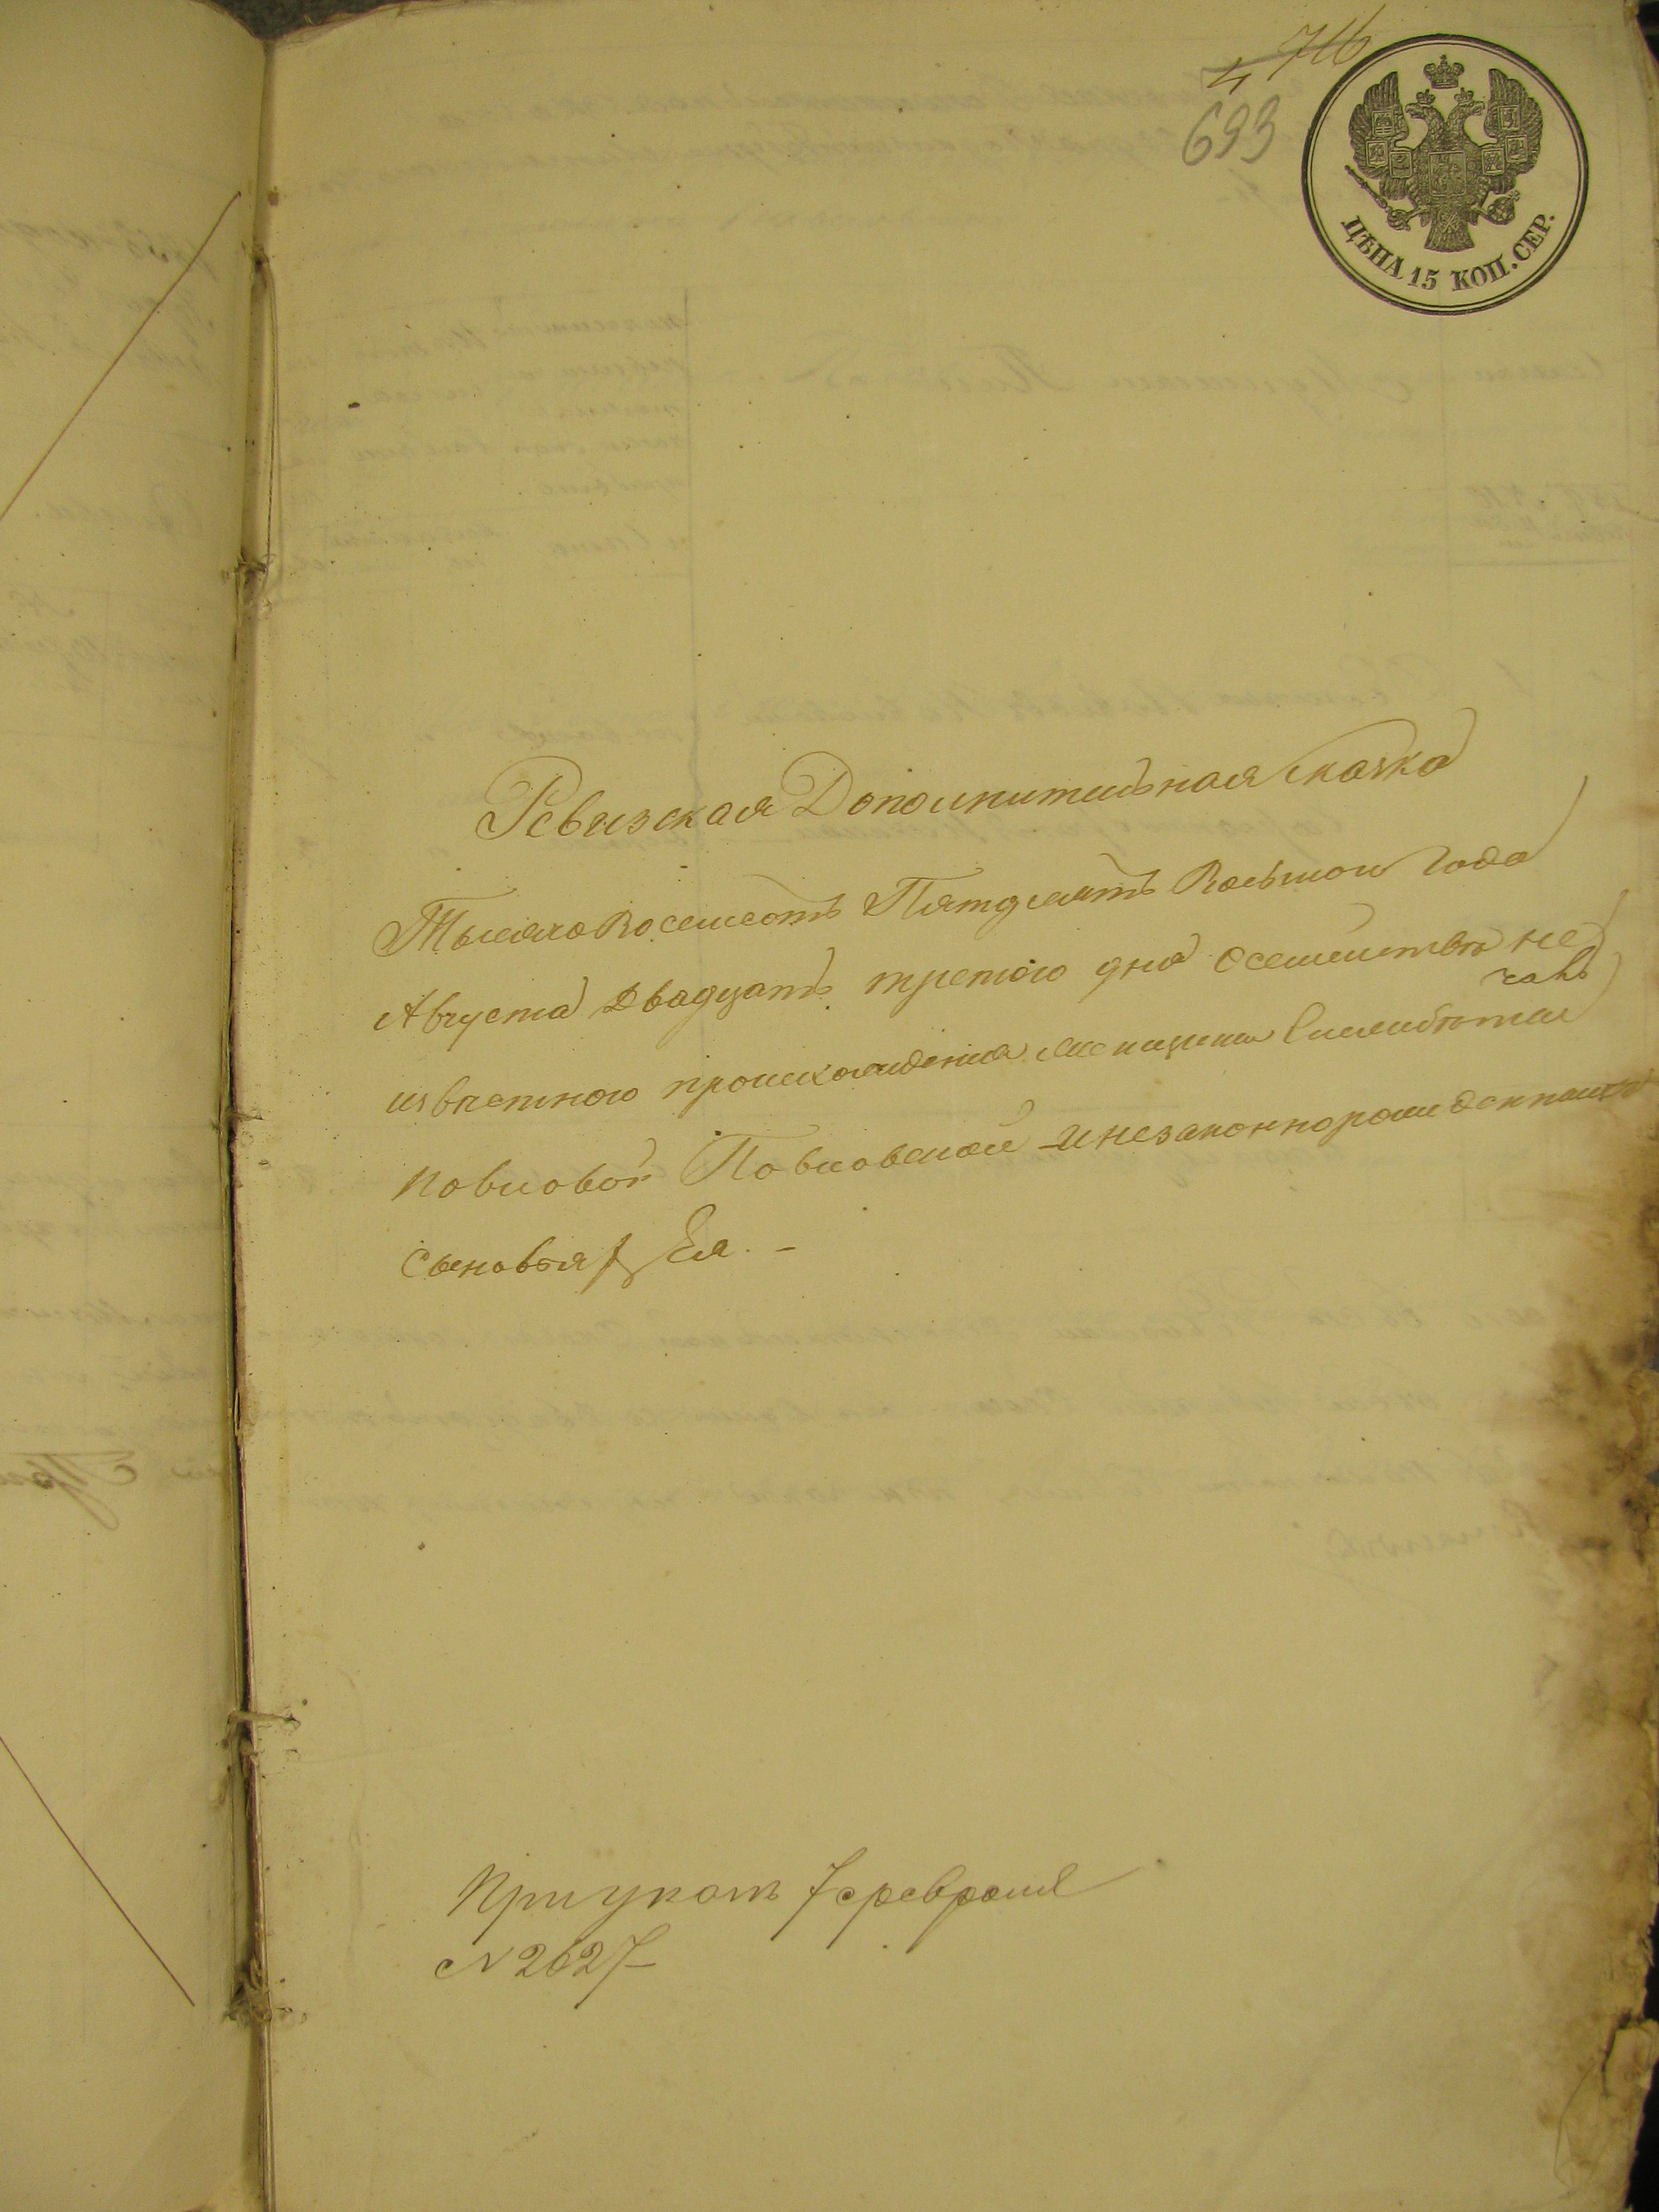 716
4
693
ЦѢНА 15 КОП. СЕР.
Ревизская Дополнительная сказка
Тысяча Восемсотъ Пятдесятъ Восьмои Года
Августа двадцать третьего дня осемействѣ не
извѣстного происхождения женщины
Повловой Повловской инезаконнорожденныхъ
сыновья Ея. -
При указѣ 7 февраля
№ 2627